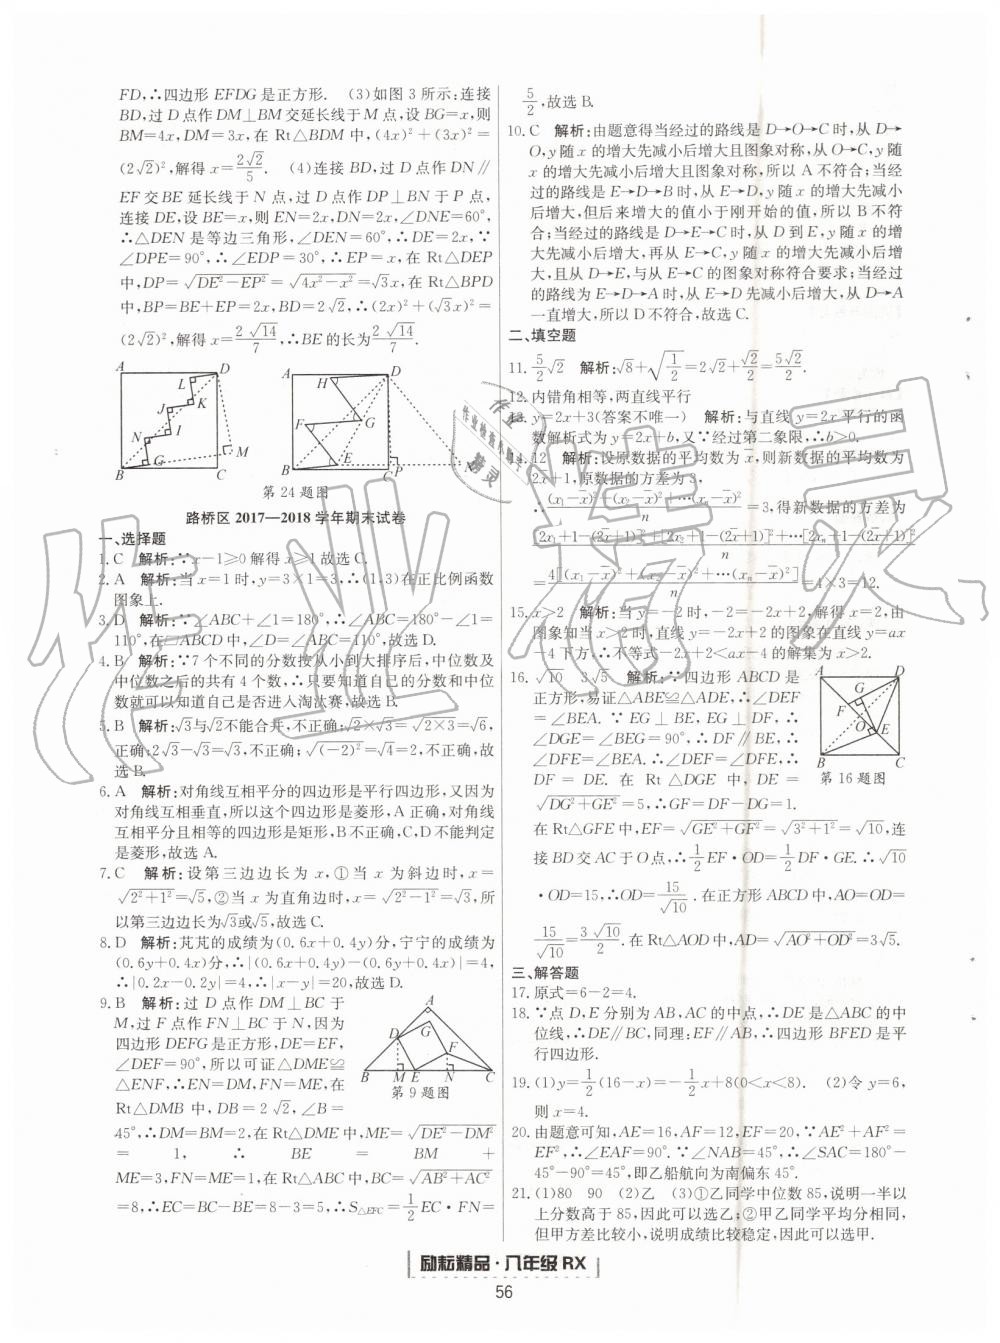 FD,∴四边形 EFDG 是正方形. (3)如图 3 所示:连接
BD,过 D 点作 DM⊥BM 交延长线于 M 点,设 BG=x,则
BM=4x,DM=3x,在 Rt△BDM 中,(4x)²+(3x)²=
(2√2)²,解得 x=2√2/5. (4)连接 BD,过 D 点作 DN∥
EF 交 BE 延长线于 N 点,过 D 点作 DP⊥BN 于 P 点,
连接 DE,设 BE=x,则 EN=2x,DN=2x,∠DNE=60°,
∴△DEN 是等边三角形,∠DEN=60°,∴DE=2x,∵
∠DPE=90°,∴∠EDP=30°,∴EP=x,在 Rt△DEP
中,DP=√(DE²-EP²)=√(4x²-x²)=√3x,在 Rt△BPD
中,BP=BE+EP=2x,BD=2√2,∴(2x)²+(√3x)²=
(2√2)²,解得 x=2√14/7,∴BE 的长为2√14/7.
A D L K J I N M B G C
A H D G F E B C P N
第 24 题图
路桥区 2017—2018 学年期末试卷
一、选择题
1. C 解析:∵x-1≥0 解得 x≥1 故选 C.
2. A 解析:当 x=1 时,y=3×1=3,∴(1,3)在正比例函数
图象上.
3. D 解析:∵∠ABC+∠1=180°,∴∠ABC=180°-∠1=
110°,在▱ABCD 中,∠D=∠ABC=110°,故选 D.
4. B 解析:∵7 个不同的分数按从小到大排序后,中位数及
中位数之后的共有 4 个数,∴只要知道自己的分数和中位
数就可以知道自己是否进入淘汰赛,故选 B.
5. B 解析:√3与√2不能合并,不正确;√2×√3=√(2×3)=√6,
正确;2√3-√3=√3,不正确;√((-2)²)=√4=2,不正确,故
选 B.
6. A 解析:对角线互相平分的四边形是平行四边形,又因为
对角线互相垂直,所以这个四边形是菱形,A 正确,对角线
互相平分且相等的四边形是矩形,B 不正确,C、D 不能判定
是菱形,故选 A.
7. C 解析:设第三边边长为 x,①当 x 为斜边时,x=
√(2²+1²)=√5,②当 x 为直角边时,x=√(2²-1²)=√3,所
以第三边边长为√3或√5,故选 C.
8. D 解析:芃芃的成绩为(0.6x+0.4y)分,宁宁的成绩为
(0.6y+0.4x)分,∴|(0.6x+0.4y)-(0.6y+0.4x)|=4,
∴|0.2x-0.2y|=4,∴|x-y|=20,故选 D.
9. B 解析:过 D 点作 DM⊥BC 于
M,过 F 点作 FN⊥BC 于 N,因为
四边形 DEFG 是正方形,DE=EF,
∠DEF=90°,所以可证△DME≌
△ENF,∴EN=DM,FN=ME,在
Rt△DMB 中,DB=2√2,∠B=
A D G F B M E N C
第 9 题图
45°,∴DM=BM=2,在 Rt△DME 中,ME=√(DE²-DM²)
=1,∴BE=BM+
ME=3,FN=ME=1,在 Rt△ABC 中,BC=√(AB²+AC²)
=8,∴EC=BC-BE=8-3=5,∴S△EFC=1/2EC·FN=
5/2,故选 B.
10. C 解析:由题意得当经过的路线是 D→O→C 时,从 D→
O,y 随 x 的增大先减小后增大且图象对称,从 O→C,y 随
x 的增大先减小后增大且图象对称,所以 A 不符合;当经
过的路线是 E→D→B 时,从 E→D,y 随 x 的增大先减小
后增大,但后来增大的值小于刚开始的值,所以 B 不符
合;当经过的路线是 D→E→C 时,从 D 到 E,y 随 x 的增
大先减小后增大,再从 E→C,y 随 x 的增大先减小后增
大,且从 D→E,与从 E→C 的图象对称符合要求;当经过
的路线为 E→D→A 时,从 E→D 先减小后增大,从 D→A
一直增大,所以 D 不符合,故选 C.
二、填空题
11. 5/2√2 解析:√8+√(1/2)=2√2+√2/2=5√2/2.
12. 内错角相等,两直线平行
13. y=2x+3(答案不唯一) 解析:与直线 y=2x 平行的函
数解析式为 y=2x+b,又∵经过第二象限,∴b>0.
14. 12 解析:设原数据的平均数为 x̄,则新数据的平均数为
2x̄+1,原数据的方差为 3,
∴((x₁-x̄)²+(x₂-x̄)²+…+(xₙ-x̄)²)/n=3,得新数据的方差为
([2x₁+1-(2x̄+1)]²+[2x₂+1-(2x̄+1)]²+…+[2xₙ+1-(2x̄+1)]²)/n
=4[(x₁-x̄)²+(x₂-x̄)²+…+(xₙ-x̄)²]/n=4×3=12.
15. x>2 解析:当 y=-2 时,-2=-2x+2,解得 x=2,由
图象知当 x>2 时,直线 y=-2x+2 的图象在直线 y=ax
-4 下方,∴不等式-2x+2<ax-4 的解集为 x>2.
16. √10 3√5 解析:∵四边形 ABCD 是
正方形,易证△ABE≌△ADE,∴∠DEF
=∠BEA.∵EG⊥BE,EG⊥DF,∴
∠DGE=∠BEG=90°,∴DF∥BE,∴
∠DFE=∠BEA.∴∠DEF=∠DFE,∴
DF=DE.在 Rt△DGE 中,DE=
A D G F O E B C
第 16 题图
√(DG²+GE²)=5,∴GF=DF-DG=1.
在 Rt△GFE 中,EF=√(GE²+GF²)=√(3²+1²)=√10,连
接 BD 交 AC 于 O 点,∴1/2EF·OD=1/2DF·GE.∴√10
·OD=15,∴OD=15/√10.在正方形 ABCD 中,AO=OD=
15/√10=3√10/2.在 Rt△AOD 中,AD=√(AO²+OD²)=3√5.
三、解答题
17. 原式=6-2=4.
18. ∵点 D,E 分别为 AB,AC 的中点,∴DE 是△ABC 的中
位线,∴DE∥BC,同理:EF∥AB,∴四边形 BFED 是平
行四边形.
19. (1)y=1/2(16-x)=-1/2x+8(0<x<8). (2)令 y=6,
则 x=4.
20. 由题意可知,AE=16,AF=12,EF=20,∵AE²+AF²=
EF²,∴∠EAF=90°.∵∠NAB=45°,∴∠SAC=180°-
45°-90°=45°,即乙船航向为南偏东 45°.
21. (1)80 90 (2)乙 (3)①乙同学中位数 85,说明一半以
上分数高于 85,因此可以选乙;②甲乙同学平均分相同,
但甲方差比较小,说明成绩比较稳定,因此可以选甲.
励耘精品·八年级 RX
56